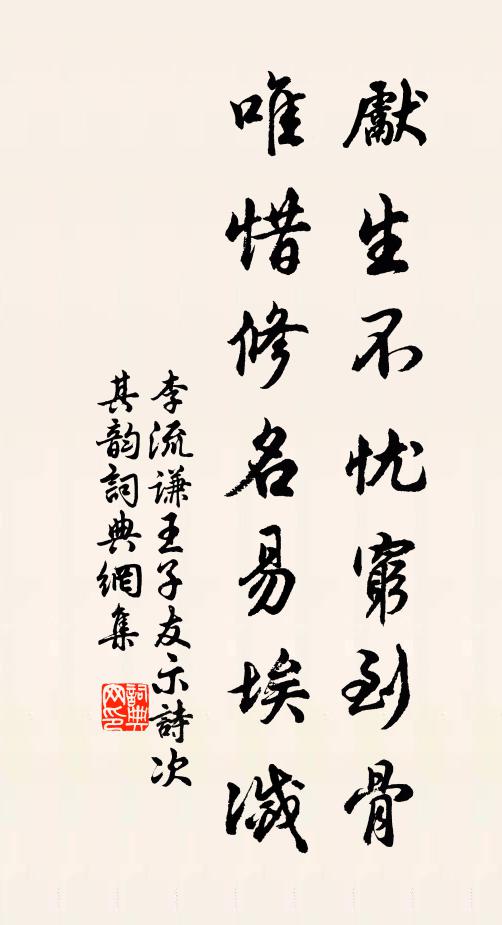 獻生不忧窮到骨
唯惜修名易埃滅
李流谦王子友示詩次
其韵詞典網集
詞典网印